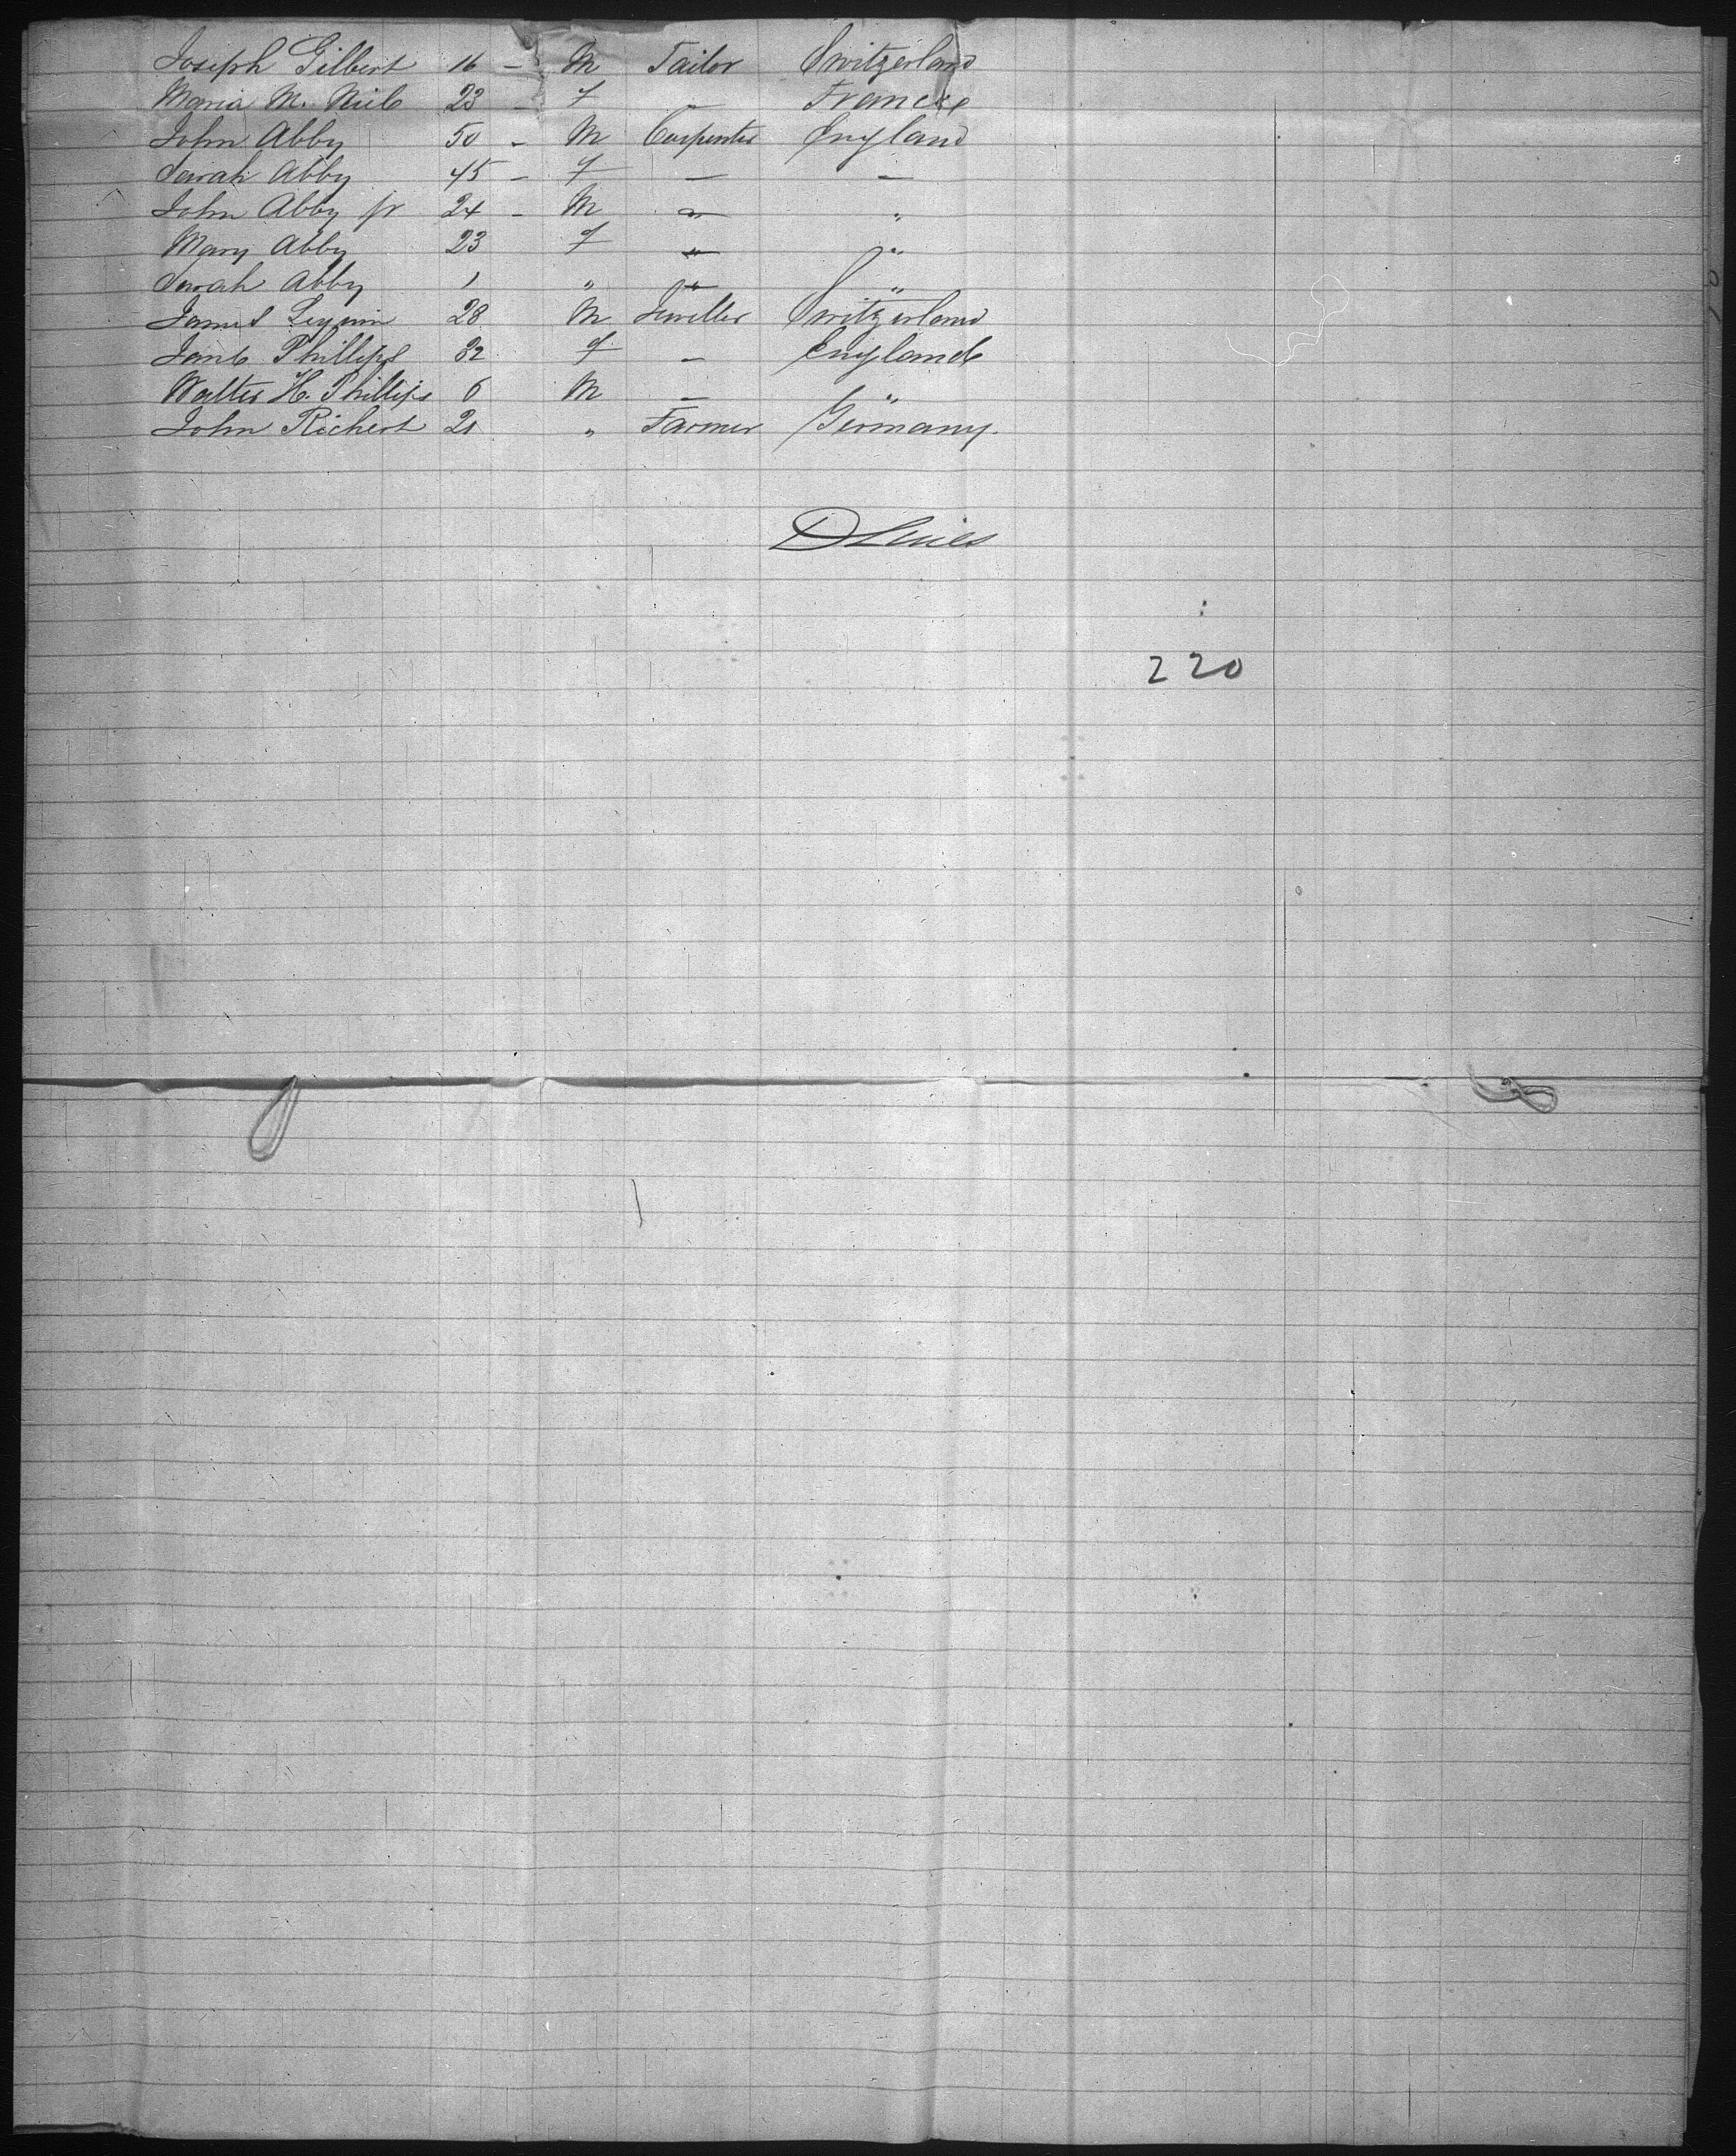 Joseph Gilbert 16 - M Tailor Switzerland
Maria M. 23 - F - France
John Abby 50 - M Carpenter England
Sarah Abby 45 - F - -
John Abby jr 24 - M - "
Mary Abby 23 F - "
Sarah Abby 1 " - "
James 28 M Jeweller Switzerland
Jane Phillips 32 F - England
Walter H. Phillips 6 M - "
John Richert 21 " Farmer Germany.
220